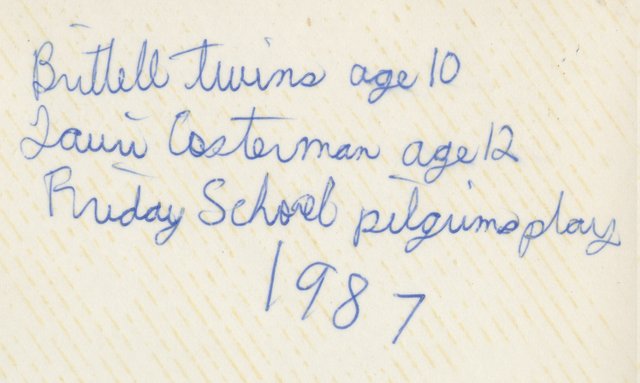 Brittell twins age 10
Lauri Costerman age 12
Friday School pilgrims play
1987